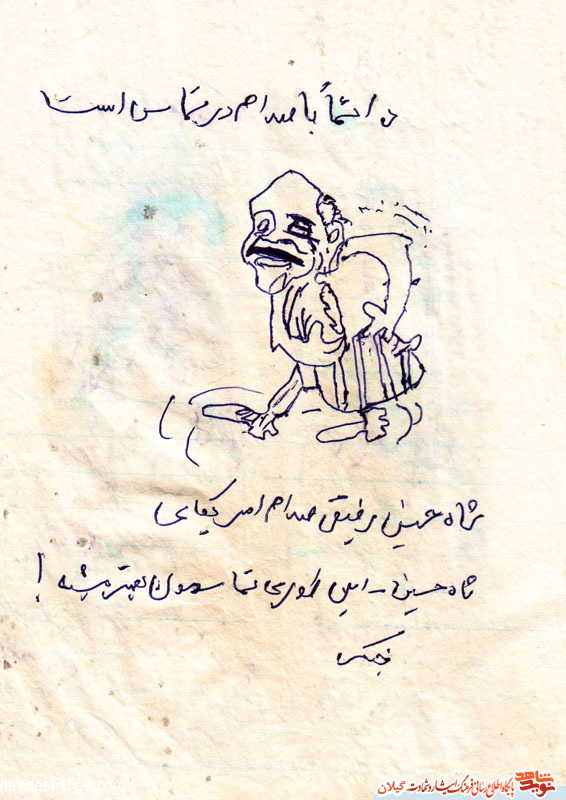 دائماً با صدام در تماس است
شاه حسین رفیق صدام امریکایی
شاه حسین - این طوری تماسمون بهتر میشه !
نوید شاهد
پایگاه اطلاع رسانی فرهنگ ایثار و شهادت گیلان